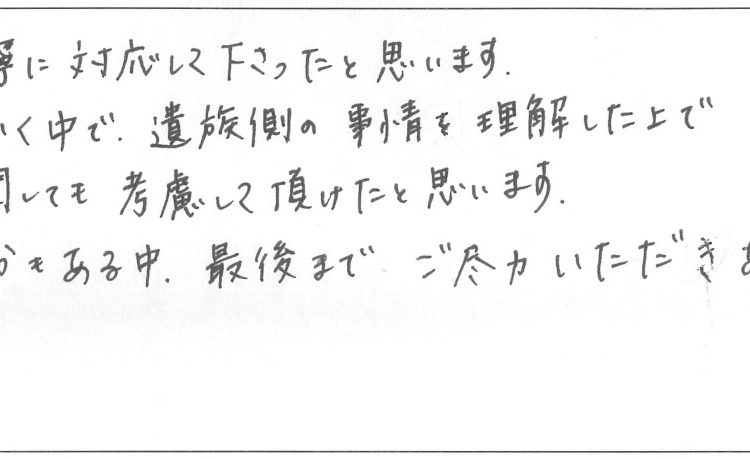 寧に対応して下さったと思います.
いく中で.遺族側の事情を理解した上で
関しても考慮して頂けたと思います.
もある中.最後まで ご尽力いただき